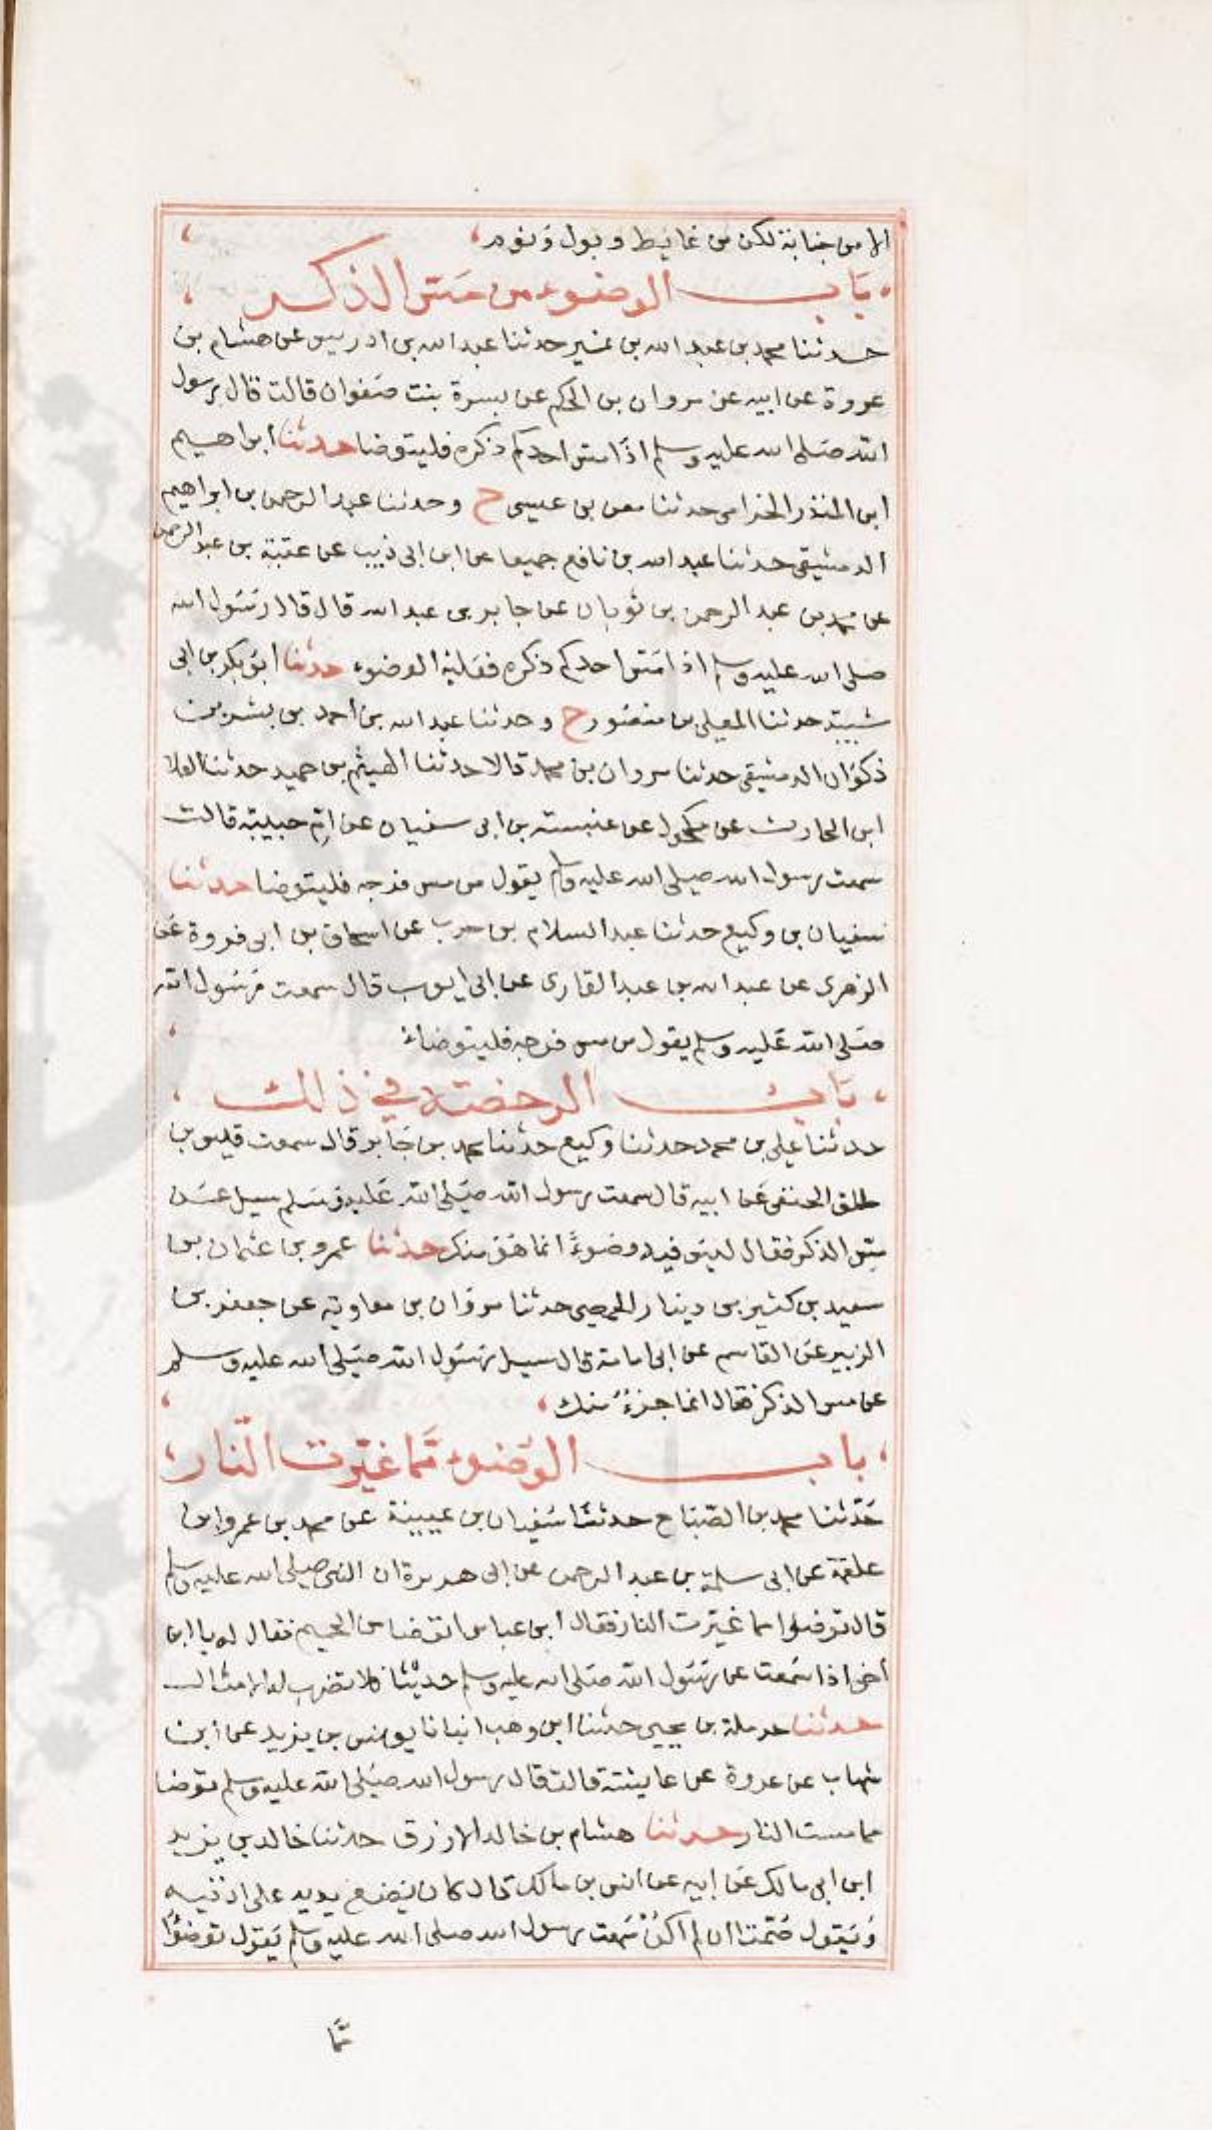 الا من جنابة لكن من غايط وبول ونوم
باب الوضوء من مس الذكر
حدثنا محمد بن عبد الله بن نمير حدثنا عبد الله بن ادريس عن هشام بن
عروة عن ابيه عن مروان بن الحكم عن بسرة بنت صفوان قالت قال رسول
الله صلى الله عليه وسلم اذا مس احدكم ذكره فليتوضا حدثنا ابراهيم
ابن المنذر الحزامي حدثنا معن بن عيسى ح وحدثنا عبد الرحمن بن ابراهيم
الدمشقي حدثنا عبد الله بن نافع جميعا عن ابن ابي ذيب عن عقبة بن عبد الرحمن
عن محمد بن عبد الرحمن بن ثوبان عن جابر بن عبد الله قال قال رسول الله
صلى الله عليه وسلم اذا مس احدكم ذكره فعليه الوضوء حدثنا ابو بكر بن ابي
شيبة حدثنا المعلى بن منصور ح وحدثنا عبد الله بن احمد بن بشير بن
ذكوان الدمشقي حدثنا مروان بن محمد قالا حدثنا الهيثم بن حميد حدثنا العلا
ابن الحارث عن مكحول عن عنبسة بن ابي سفيان عن ام حبيبة قالت
سمعت رسول الله صلى الله عليه وسلم يقول من مس فرجه فليتوضا حدثنا
سفيان بن وكيع حدثنا عبد السلام بن حرب عن اسحاق بن ابي فروة عن
الزهري عن عبد الله بن عبد القاري عن ابي ايوب قال سمعت رسول الله
صلى الله عليه وسلم يقول من مس فرجه فليتوضاء
باب الرخصة في ذلك
حدثنا علي بن محمد حدثنا وكيع حدثنا محمد بن جابر قال سمعت قيس بن
طلق الحنفي عن ابيه قال سمعت رسول الله صلى الله عليه وسلم سيل عن
مس الذكر فقال ليس فيه وضوء انما هو منك حدثنا عمرو بن عثمان بن
سعيد بن كثير بن دينار الحمصي حدثنا مروان بن معاوية عن جعفر بن
الزبير عن القاسم عن ابي امامة قال سيل رسول الله صلى الله عليه وسلم
عن مس الذكر فقال انما جزء منك
باب الوضوء مما غيرت النار
حدثنا محمد بن الصباح حدثنا سفيان بن عيينة عن محمد بن عمرو ابن
علقمة عن ابي سلمة بن عبد الرحمن عن ابي هريرة ان النبي صلى الله عليه وسلم
قال توضوا مما غيرت النار فقال ابن عباس اتوضا من الحميم فقال له يا ابن
اخي اذا سمعت عن رسول الله صلى الله عليه وسلم حديثا فلا تضرب له الامثال
حدثنا حرملة بن يحيى حدثنا ابن وهب انبانا يونس بن يزيد عن ابن
شهاب عن عروة عن عايشة قالت قال رسول الله صلى الله عليه وسلم توضا
مما مست النار حدثنا هشام بن خالد الازرق حدثنا خالد بن يزيد
ابن ابي مالك عن ابيه عن انس بن مالك قال كان يضع يديه على اذنيه
ويقول صمتا ان لم اكن سمعت رسول الله صلى الله عليه وسلم يقول توضوا
مما